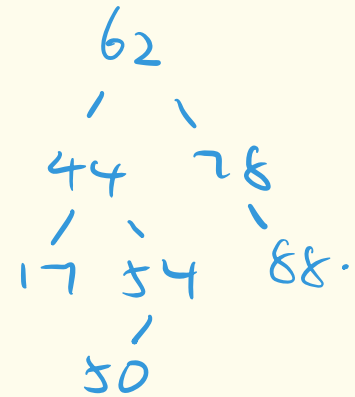 62
44 78
17 54 88.
50